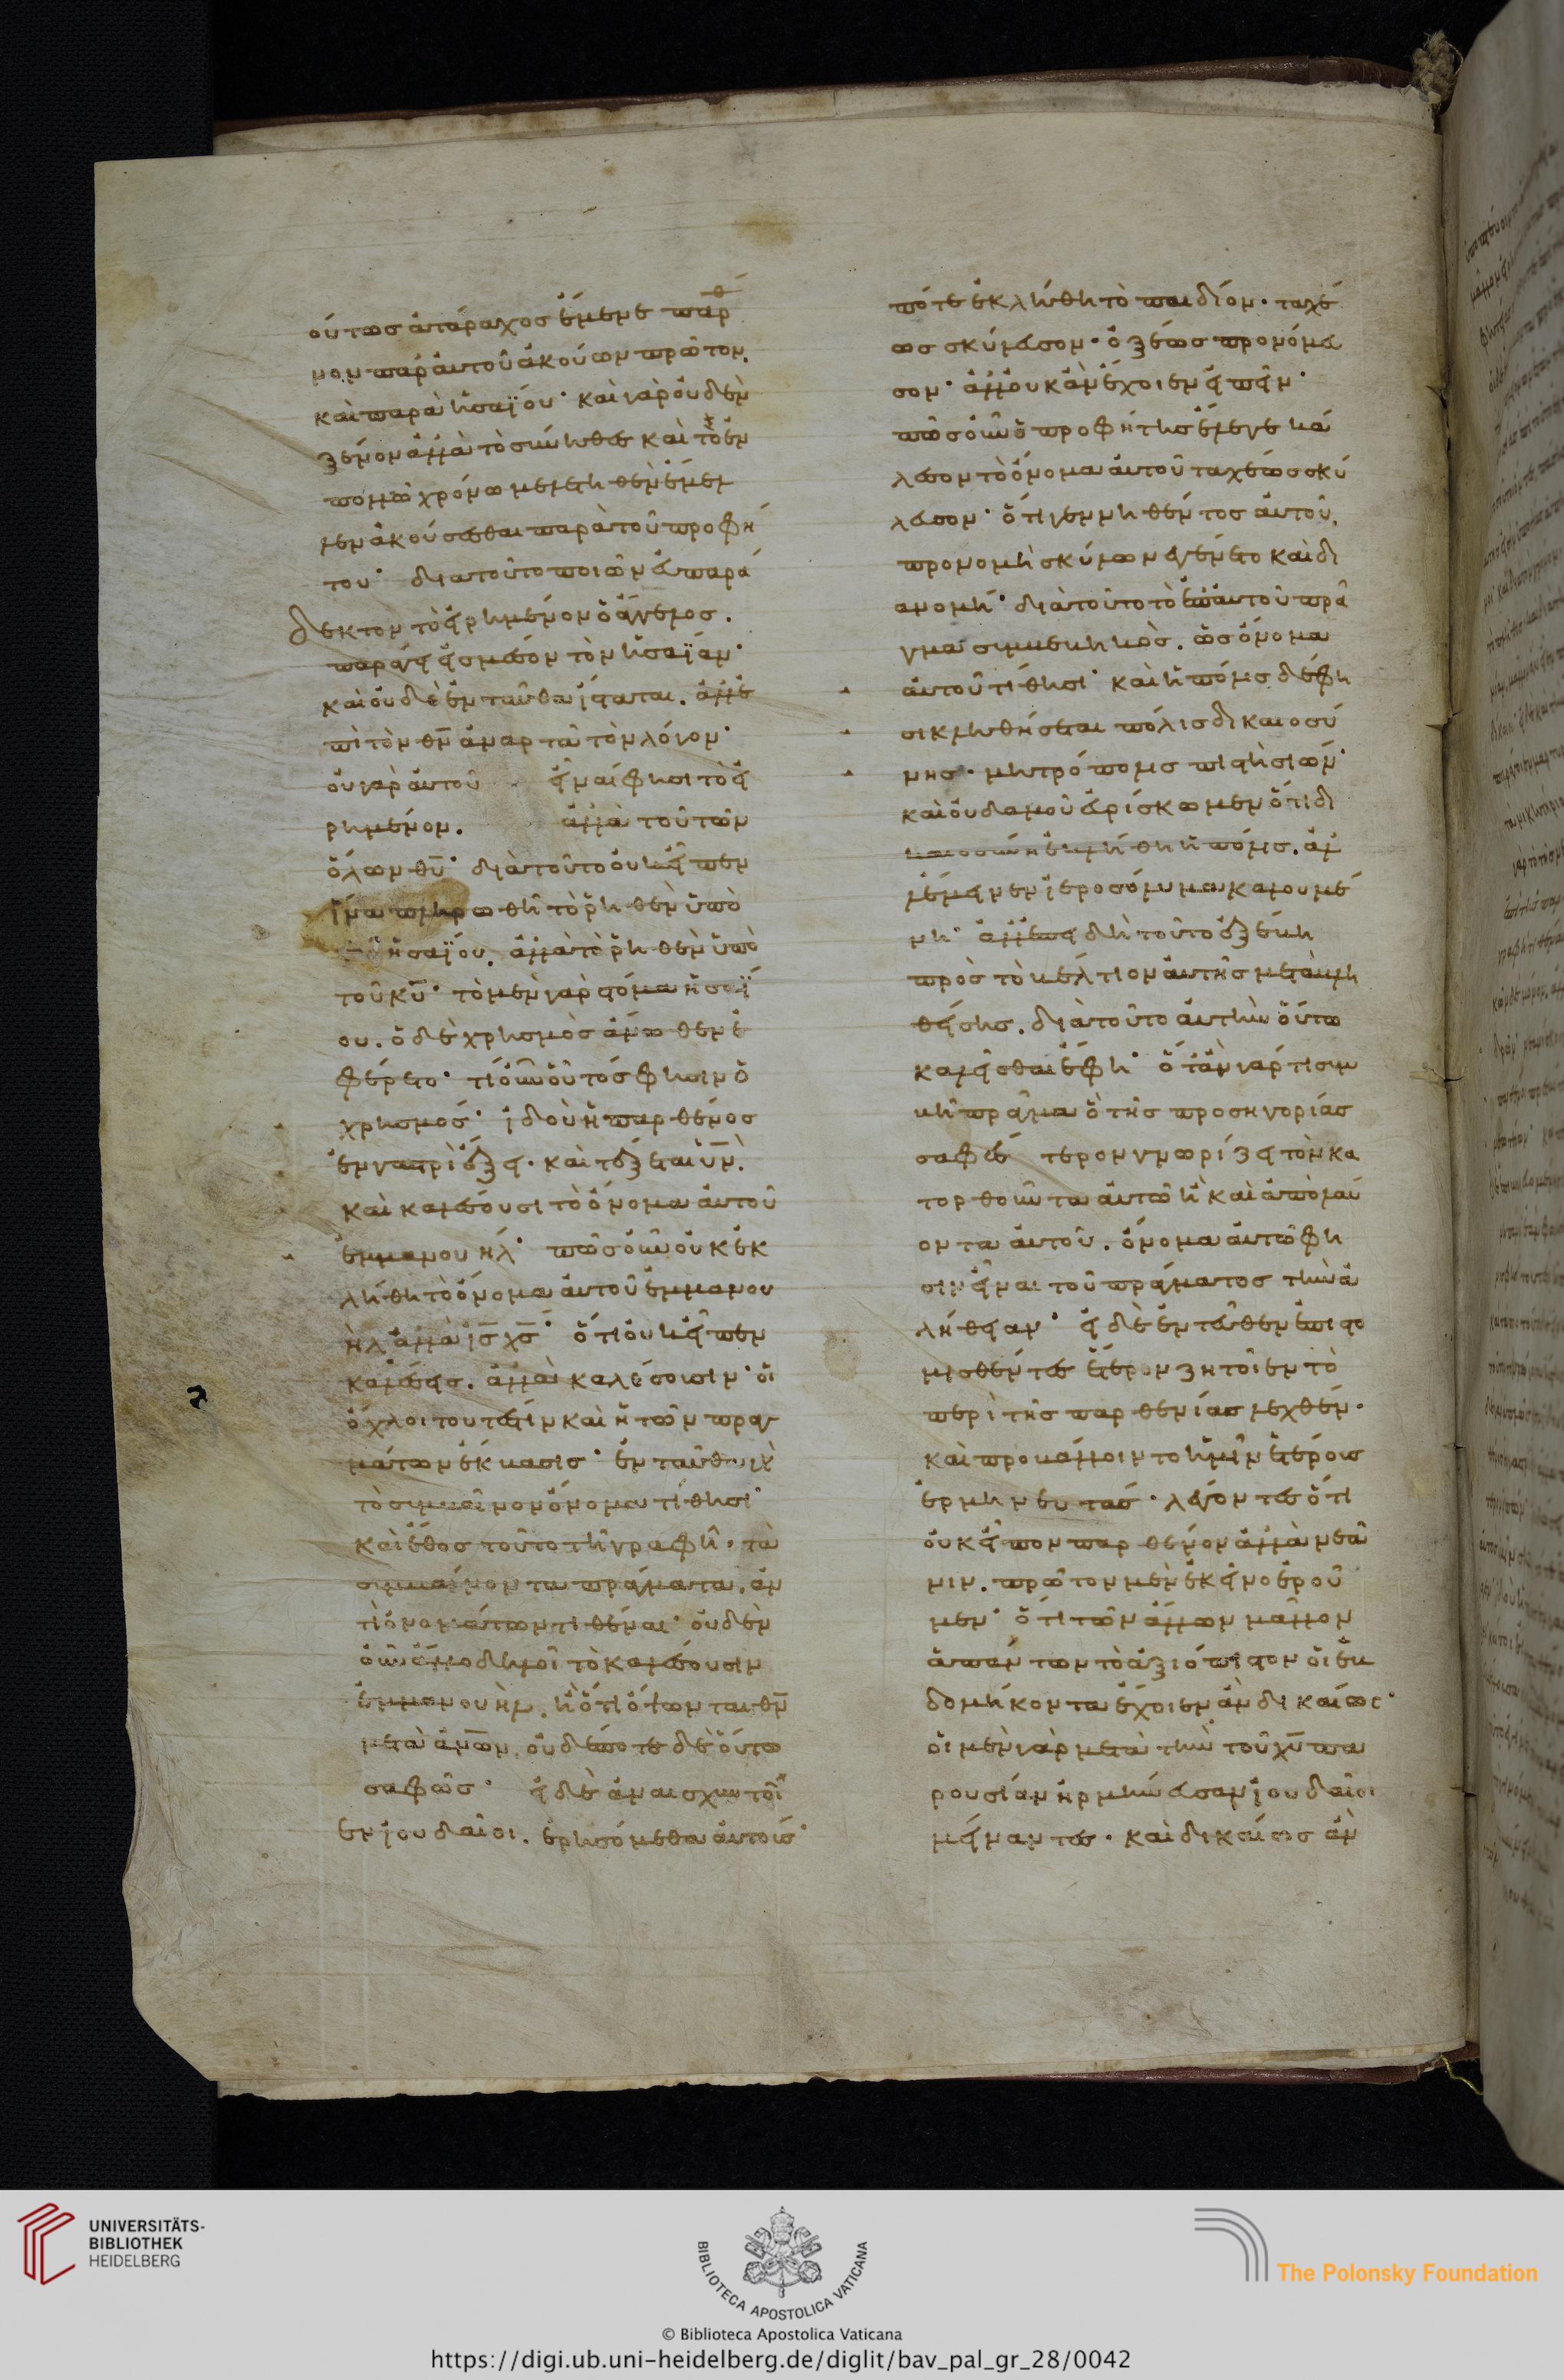 οὕτως ἀτάραχος ἔμενε παρθ
νον παρ' αὐτοῦ ἀκούων πρῶτον.
καὶ παρὰ ἡσαΐου· καὶ γὰρ οὐδὲν
ξένον ἀλλὰ τὸ σύνηθες καὶ τὸ ἐν
πολλῶ χρόνω μελετηθὲν ἔμελ
λεν ἀκούσεσθαι παρὰ τοῦ προφή
του· διατοῦτο ποιῶν εὐπαρά
δεκτον τὸ εἰρημένον ὁ ἄγγελος.
παράγει εἰς μέσον τὸν ἡσαΐαν·
καὶ οὐδὲ ἐνταῦθα ἵσταται. ἀλλ' ἐ
πὶ τὸν θ̅ν̅ ἀναρτᾶ τὸν λόγον·
οὐ γὰρ αὐτοῦ εἶναί φησι τὸ εἰ
ρημένον. ἀλλὰ τοῦ τῶν
ὅλων θ̅υ̅· διὰ τοῦτο οὐκ εἶπεν
ἵνα πληρωθῆ τὸ ῥηθὲν ὑπὸ
ἡσαΐου. ἀλλὰ τὸ ῥηθὲν ὑπὸ
τοῦ κ̅υ̅· τὸ μὲν γὰρ στόμα ἡσαΐ
ου. ὁ δὲ χρησμὸς ἄνωθεν ἐ
φέρετο· τί οὖν οὗτός φησιν ὁ
χρησμός· ἰδοὺ ἡ παρθένος
ἐν γαστρὶ ἕξει. καὶ τέξεται υ̅ν̅.
καὶ καλέσουσι τὸ ὄνομα αὐτοῦ
ἐμμανουήλ· πῶς οὖν οὐκ ἐκ
λήθη τὸ ὄνομα αὐτοῦ ἐμμανου
ὴλ ἀλλὰ ι̅ς̅ χ̅ς̅· ὅτι οὐκ εἶπεν
καλέσεις. ἀλλὰ καλέσουσιν· οἱ
ὄχλοι τουτέστιν καὶ ἡ τῶν πραγ
μάτων ἔκβασις· ἐνταῦθα μὲν
τὸ συμβαῖνον ὄνομα τίθησι·
καὶ ἔθος τοῦτο τῆ γραφῆ. τὰ
συμβαίνοντα πράγματα. ἀν
τὶ ὀνομάτων τιθέναι· οὐδὲν
οὖν ἄλλο δηλοῖ τὸ καλέσουσιν
ἐμμανουὴλ. ἢ ὅτι ὄψονται θ̅ν̅
μετὰ ἀ̅ν̅ω̅ν̅. οὐδέποτε δὲ οὕτω
σαφῶς· εἰ δὲ ἀναισχυντοῖ
εν ἰουδαῖοι. ἐρησόμεθα αὐτούς·
πότε ἐκλήθη τὸ παιδίον. ταχέ
ως σκύλευσον. ὀξέως προνόμευ
σον· ἀλλ' οὐκ ἂν ἔχοιεν εἰπεῖν·
πῶς οὖν ὁ προφήτης ἔλεγε κά
λεσον τὸ ὄνομα αὐτοῦ ταχέως σκύ
λευσον· ὅτι γεννηθέντος αὐτοῦ.
προνομὴ σκύλων ἐγένετο καὶ δι
ανομή· διὰ τοῦτο τὸ ἐπ' αὐτοῦ πρᾶ
γμα συμβεβηκὸς. ὡς ὄνομα
αὐτοῦ τίθησι· καὶ ἡ πόλις δέ φη
σι κληθήσεται πόλις δικαιοσύ
νης. μητρόπολις πιστὴ σιών·
καὶ οὐδαμοῦ εὑρίσκωμεν ὅτι δι
καιοσύνη ἐκλήθη ἡ πόλις. ἀλ
λ' ἔμεινεν ἱεροσόλυμα καλουμέ
νη· ἀλλ' ἐπειδὴ τοῦτο ἐξέβη
πρὸς τὸ βέλτιον αὐτῆς μεταβλη
θείσης. διὰ τοῦτο αὐτὴν οὕτω
καλεῖσθαι ἔφη· ὅταν γάρ τι συμ
βῆ πρᾶγμα ὃ τῆς προσηγορίας
σαφέστερον γνωρίζει τὸν κα
τορθοῦντα αὐτὸ ἢ καὶ ἀπολαύ
οντα αὐτοῦ. ὄνομα αὐτῶ φη
σιν εἶναι τοῦ πράγματος τὴν ἀ
λήθειαν· εἰ δὲ ἐντεῦθεν ἐπιστο
μισθέντες ἕτερον ζητοῖεν τὸ
περὶ τῆς παρθενίας λεχθέν.
καὶ προβάλλοιντο ἡμῖν ἑτέρους
ἑρμηνευτάς. λέγοντες ὅτι
οὐκ εἶπον παρθένον ἀλλὰ νεᾶ
νιν. πρῶτον μὲν ἐκεῖνο ἐροῦ
μεν· ὅτι τῶν ἄλλων μᾶλλον
ἁπάντων τὸ ἀξιόπιστον οἱ ἑβ
δομήκοντα ἔχοιεν ἂν δικαίως·
οἱ μὲν γὰρ μετὰ τὴν τοῦ χ̅υ̅ πα
ρουσίαν ἡρμήνευσαν ἰουδαῖοι
μείναντες. καὶ δικαίως ἂν
UNIVERSITÄTS-
BIBLIOTHEK
HEIDELBERG
BIBLIOTECA APOSTOLICA VATICANA
The Polonsky Foundation
© Biblioteca Apostolica Vaticana
https://digi.ub.uni-heidelberg.de/diglit/bav_pal_gr_28/0042